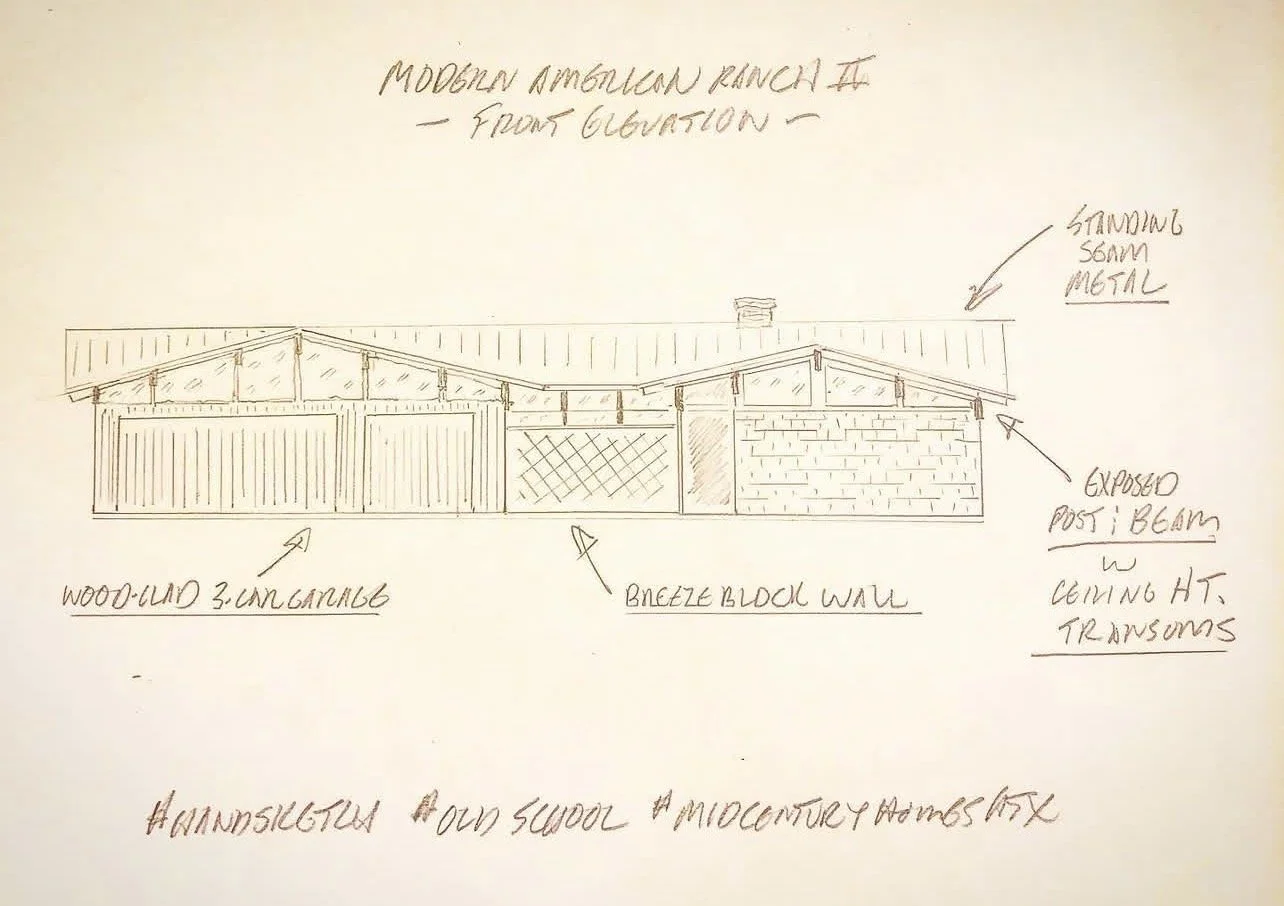 MODERN AMERICAN RANCH II
- FRONT ELEVATION -
STANDING
SEAM
METAL
EXPOSED
POST & BEAM
W
CEILING HT.
TRANSOMS
WOOD-CLAD 3-CAR GARAGE
BREEZE BLOCK WALL
#HANDSKETCH #OLD SCHOOL #MIDCENTURYHOMESATX